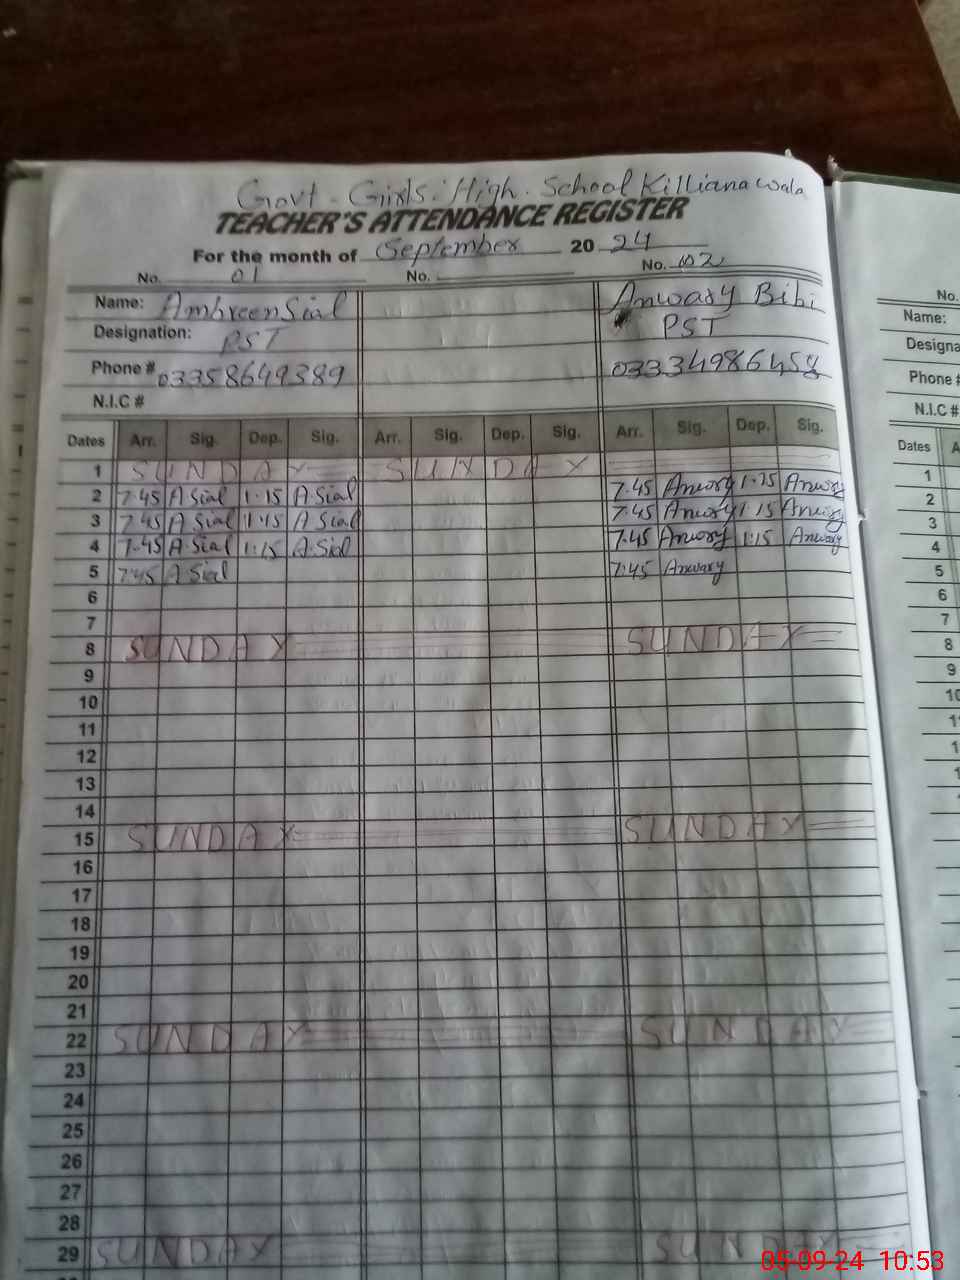 Govt. Girls. High. School Killianawala
TEACHER'S ATTENDANCE REGISTER
For the month of September 20 24
No. 01 No. No. 02
Name: Ambreen Sial Anwary Bibi
Designation: PST PST
Phone # 03358649389 03334986458
N.I.C #
Dates Arr. Sig. Dep. Sig. Arr. Sig. Dep. Sig. Arr. Sig. Dep. Sig.
1 SUNDAY SUNDAY
2 7.45 A Sial 1.15 A Sial 7.45 Anwary 1.15 Anwary
3 7.45 A Sial 1.15 A Sial 7.45 Anwary 1.15 Anwary
4 7.45 A Sial 1.15 A Sial 7.45 Anwary 1.15 Anwary
5 7.45 A Sial 7.45 Anwary
6
7
8 SUNDAY SUNDAY
9
10
11
12
13
14
15 SUNDAY SUNDAY
16
17
18
19
20
21
22 SUNDAY SUNDAY
23
24
25
26
27
28
29 SUNDAY SUNDAY
No.
Name:
Designa
Phone #
N.I.C #
Dates A
1
2
3
4
5
6
7
8
9
10
05-09-24 10:53